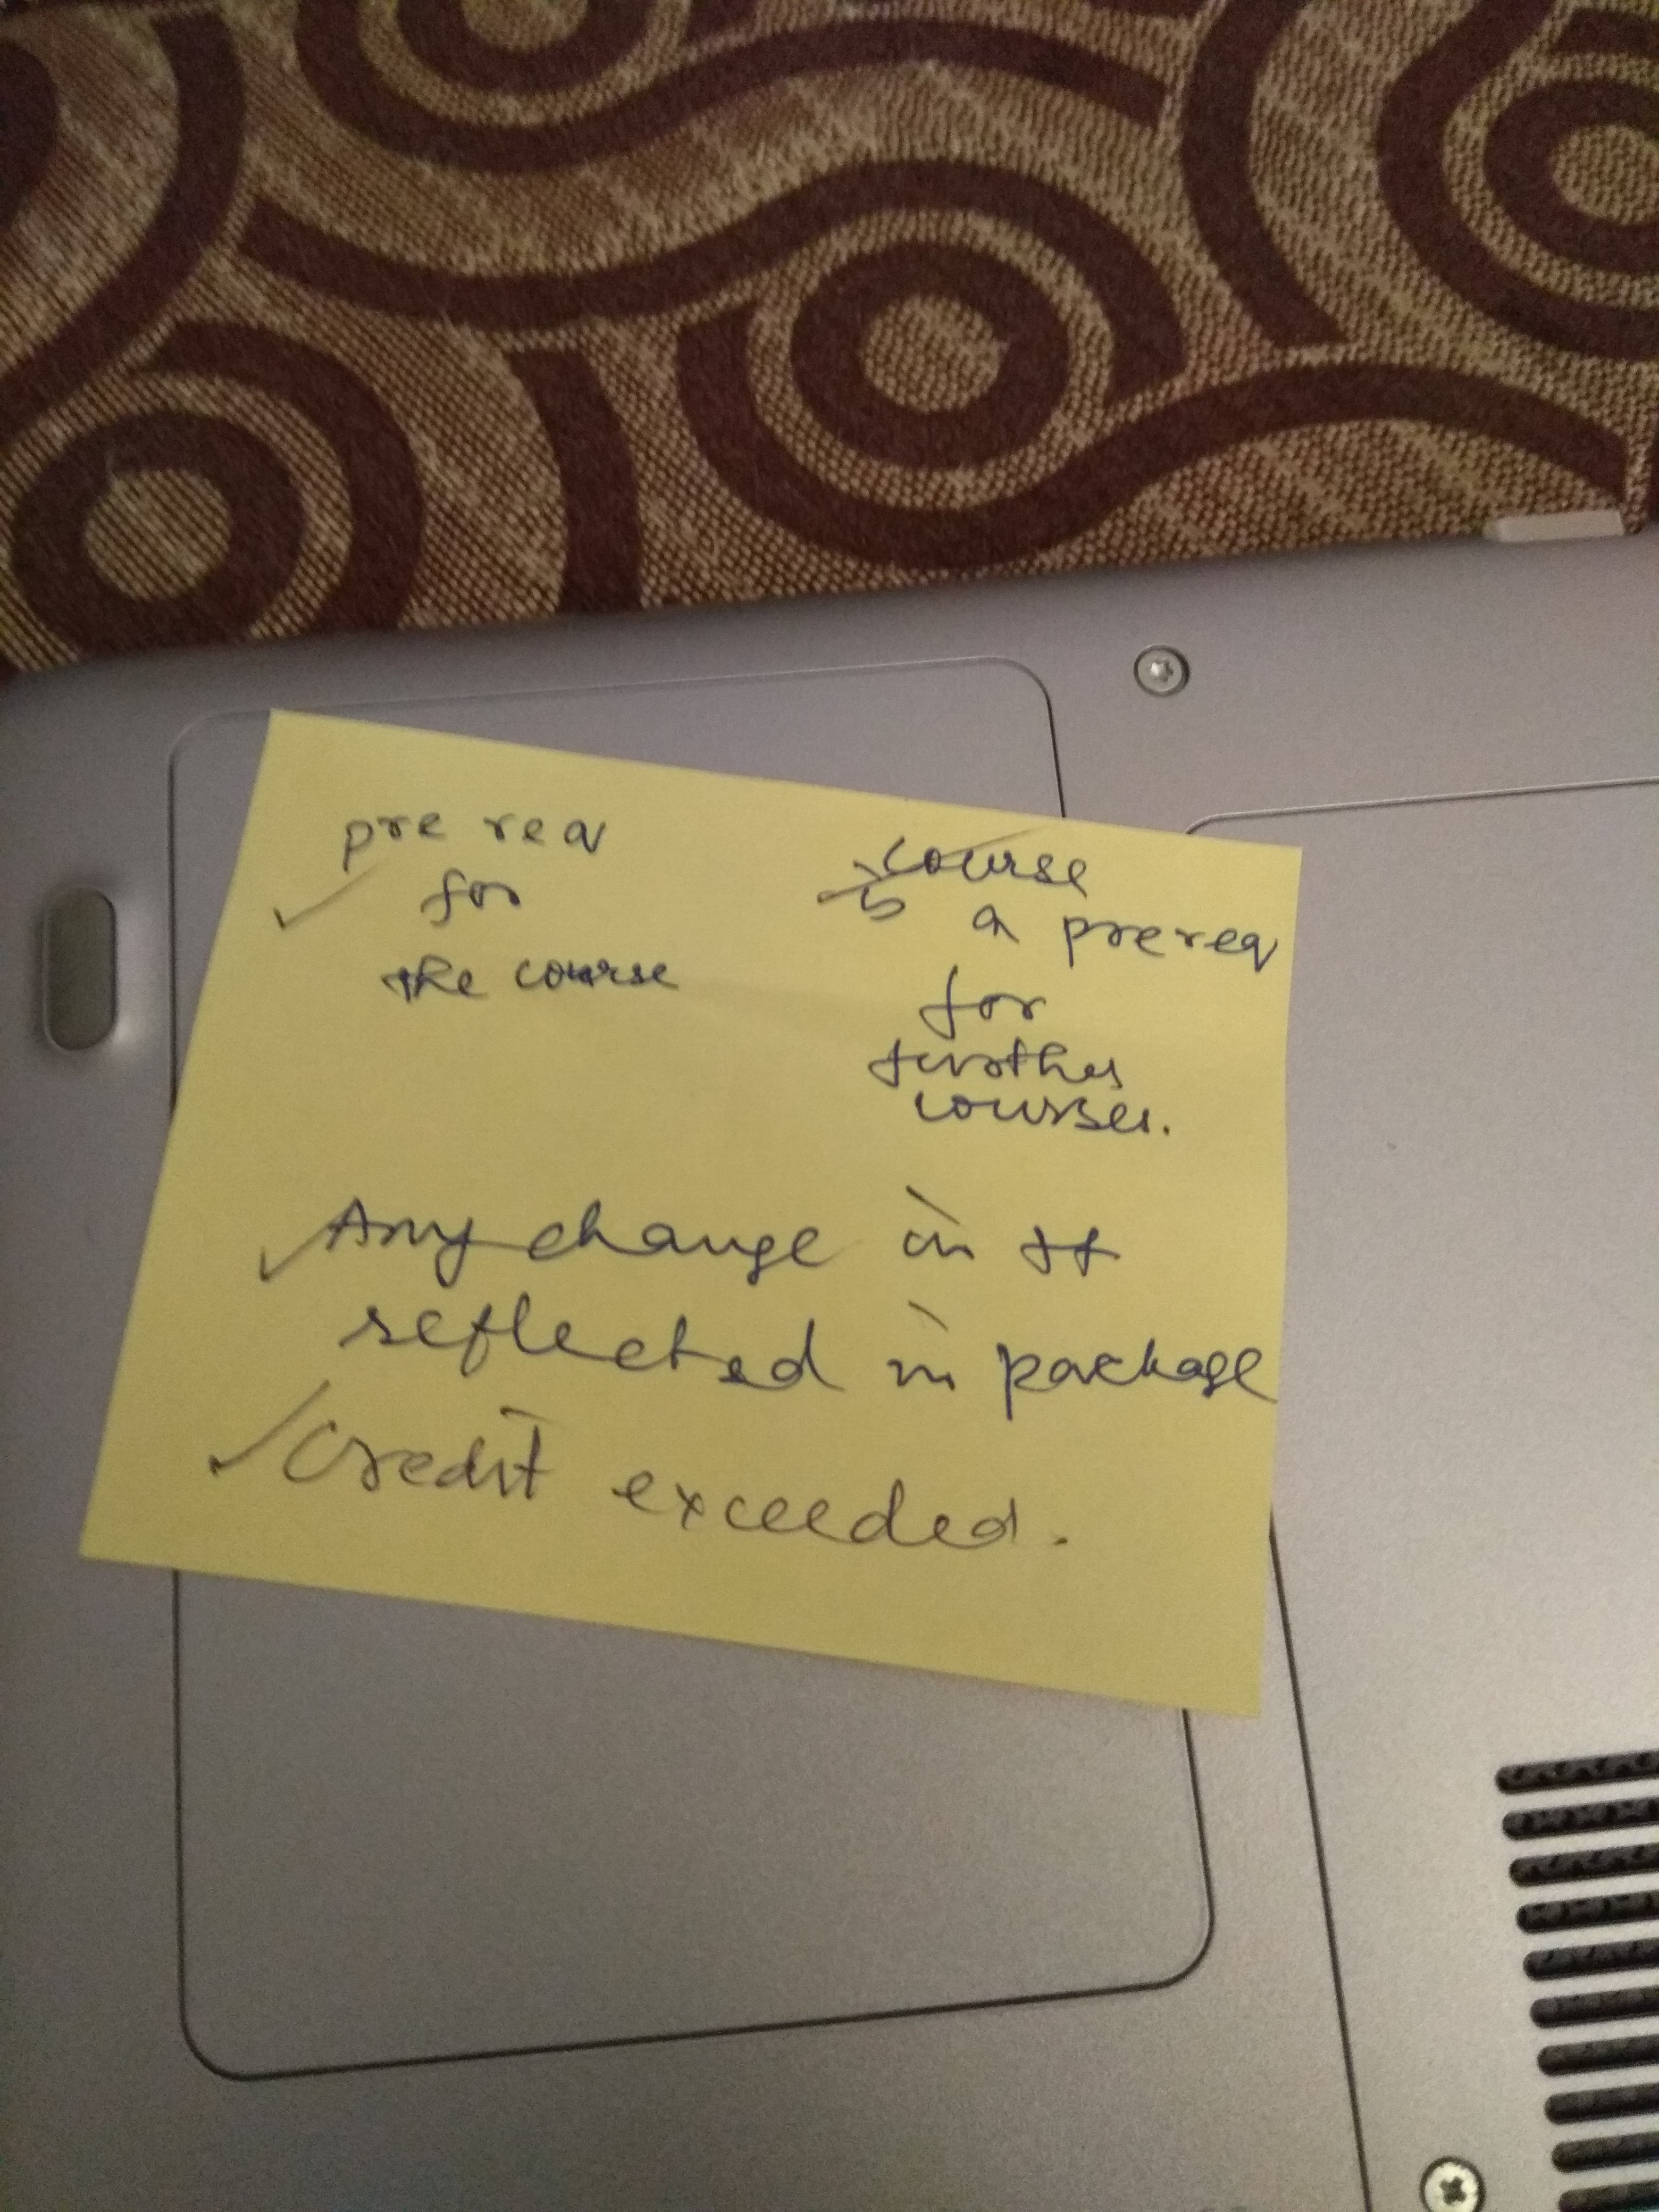 pre req
for
the course
course
is a prereq
for
further
courses.
Any change in tt
reflected in package
Credit exceeded.